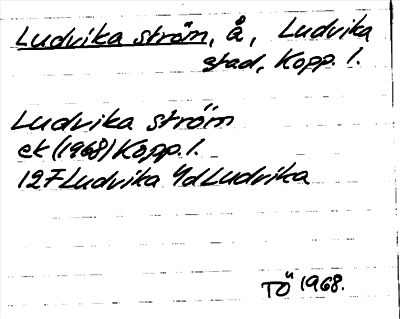 Ludvika ström, å, Ludvika
stad, Kopp. l.
Ludvika ström
ek (1968) Kopp. l.
12F Ludvika 4d Ludvika
TÖ 1968.